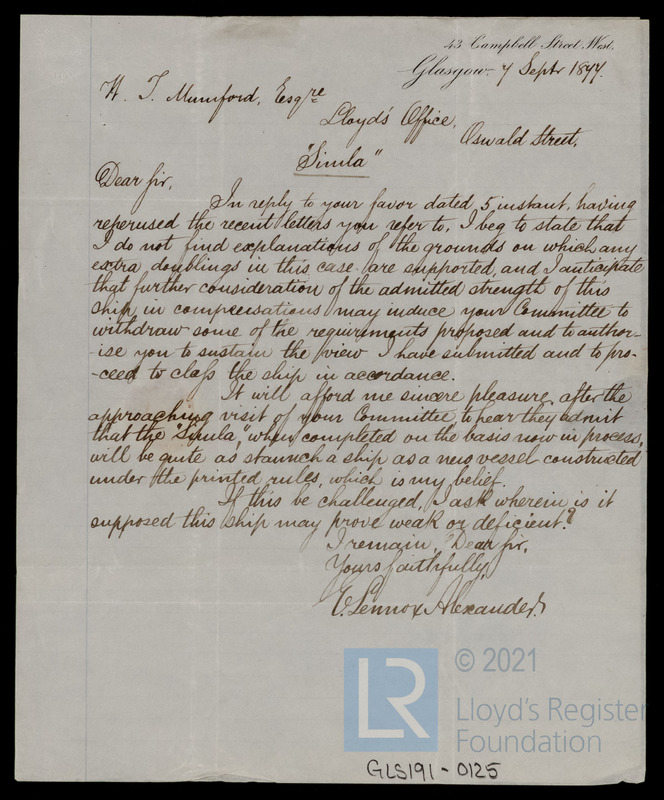 43 Campbell Street West,
Glasgow. 7 Septr 1877.
W. T. Mumford, Esqre
Lloyd's Office,
Oswald Street.
"Simla"
Dear Sir,
In reply to your favor dated 5 instant, having
reperused the recent letters you refer to, I beg to state that
I do not find explanations of the grounds on which any
extra doublings in this case are supported, and I anticipate
that further consideration of the admitted strength of this
ship in compensations may induce your Committee to
withdraw some of the requirments proposed and to author-
-ise you to sustain the view I have submitted and to pro-
-ceed to class the ship in accordance.
It will afford me sincere pleasure, after the
approaching visit of your Committee to hear they admit
that the "Simla", when completed on the basis now in process,
will be quite as staunch a ship as a new vessel constructed
under the printed rules, which is my belief.
If this be challenged, I ask wherein is it
supposed this ship may prove weak or deficient?
I remain, Dear Sir,
Yours faithfully,
E. Lennox Alexander.
LR
© 2021
Lloyd's Register
Foundation
GLS191-0125